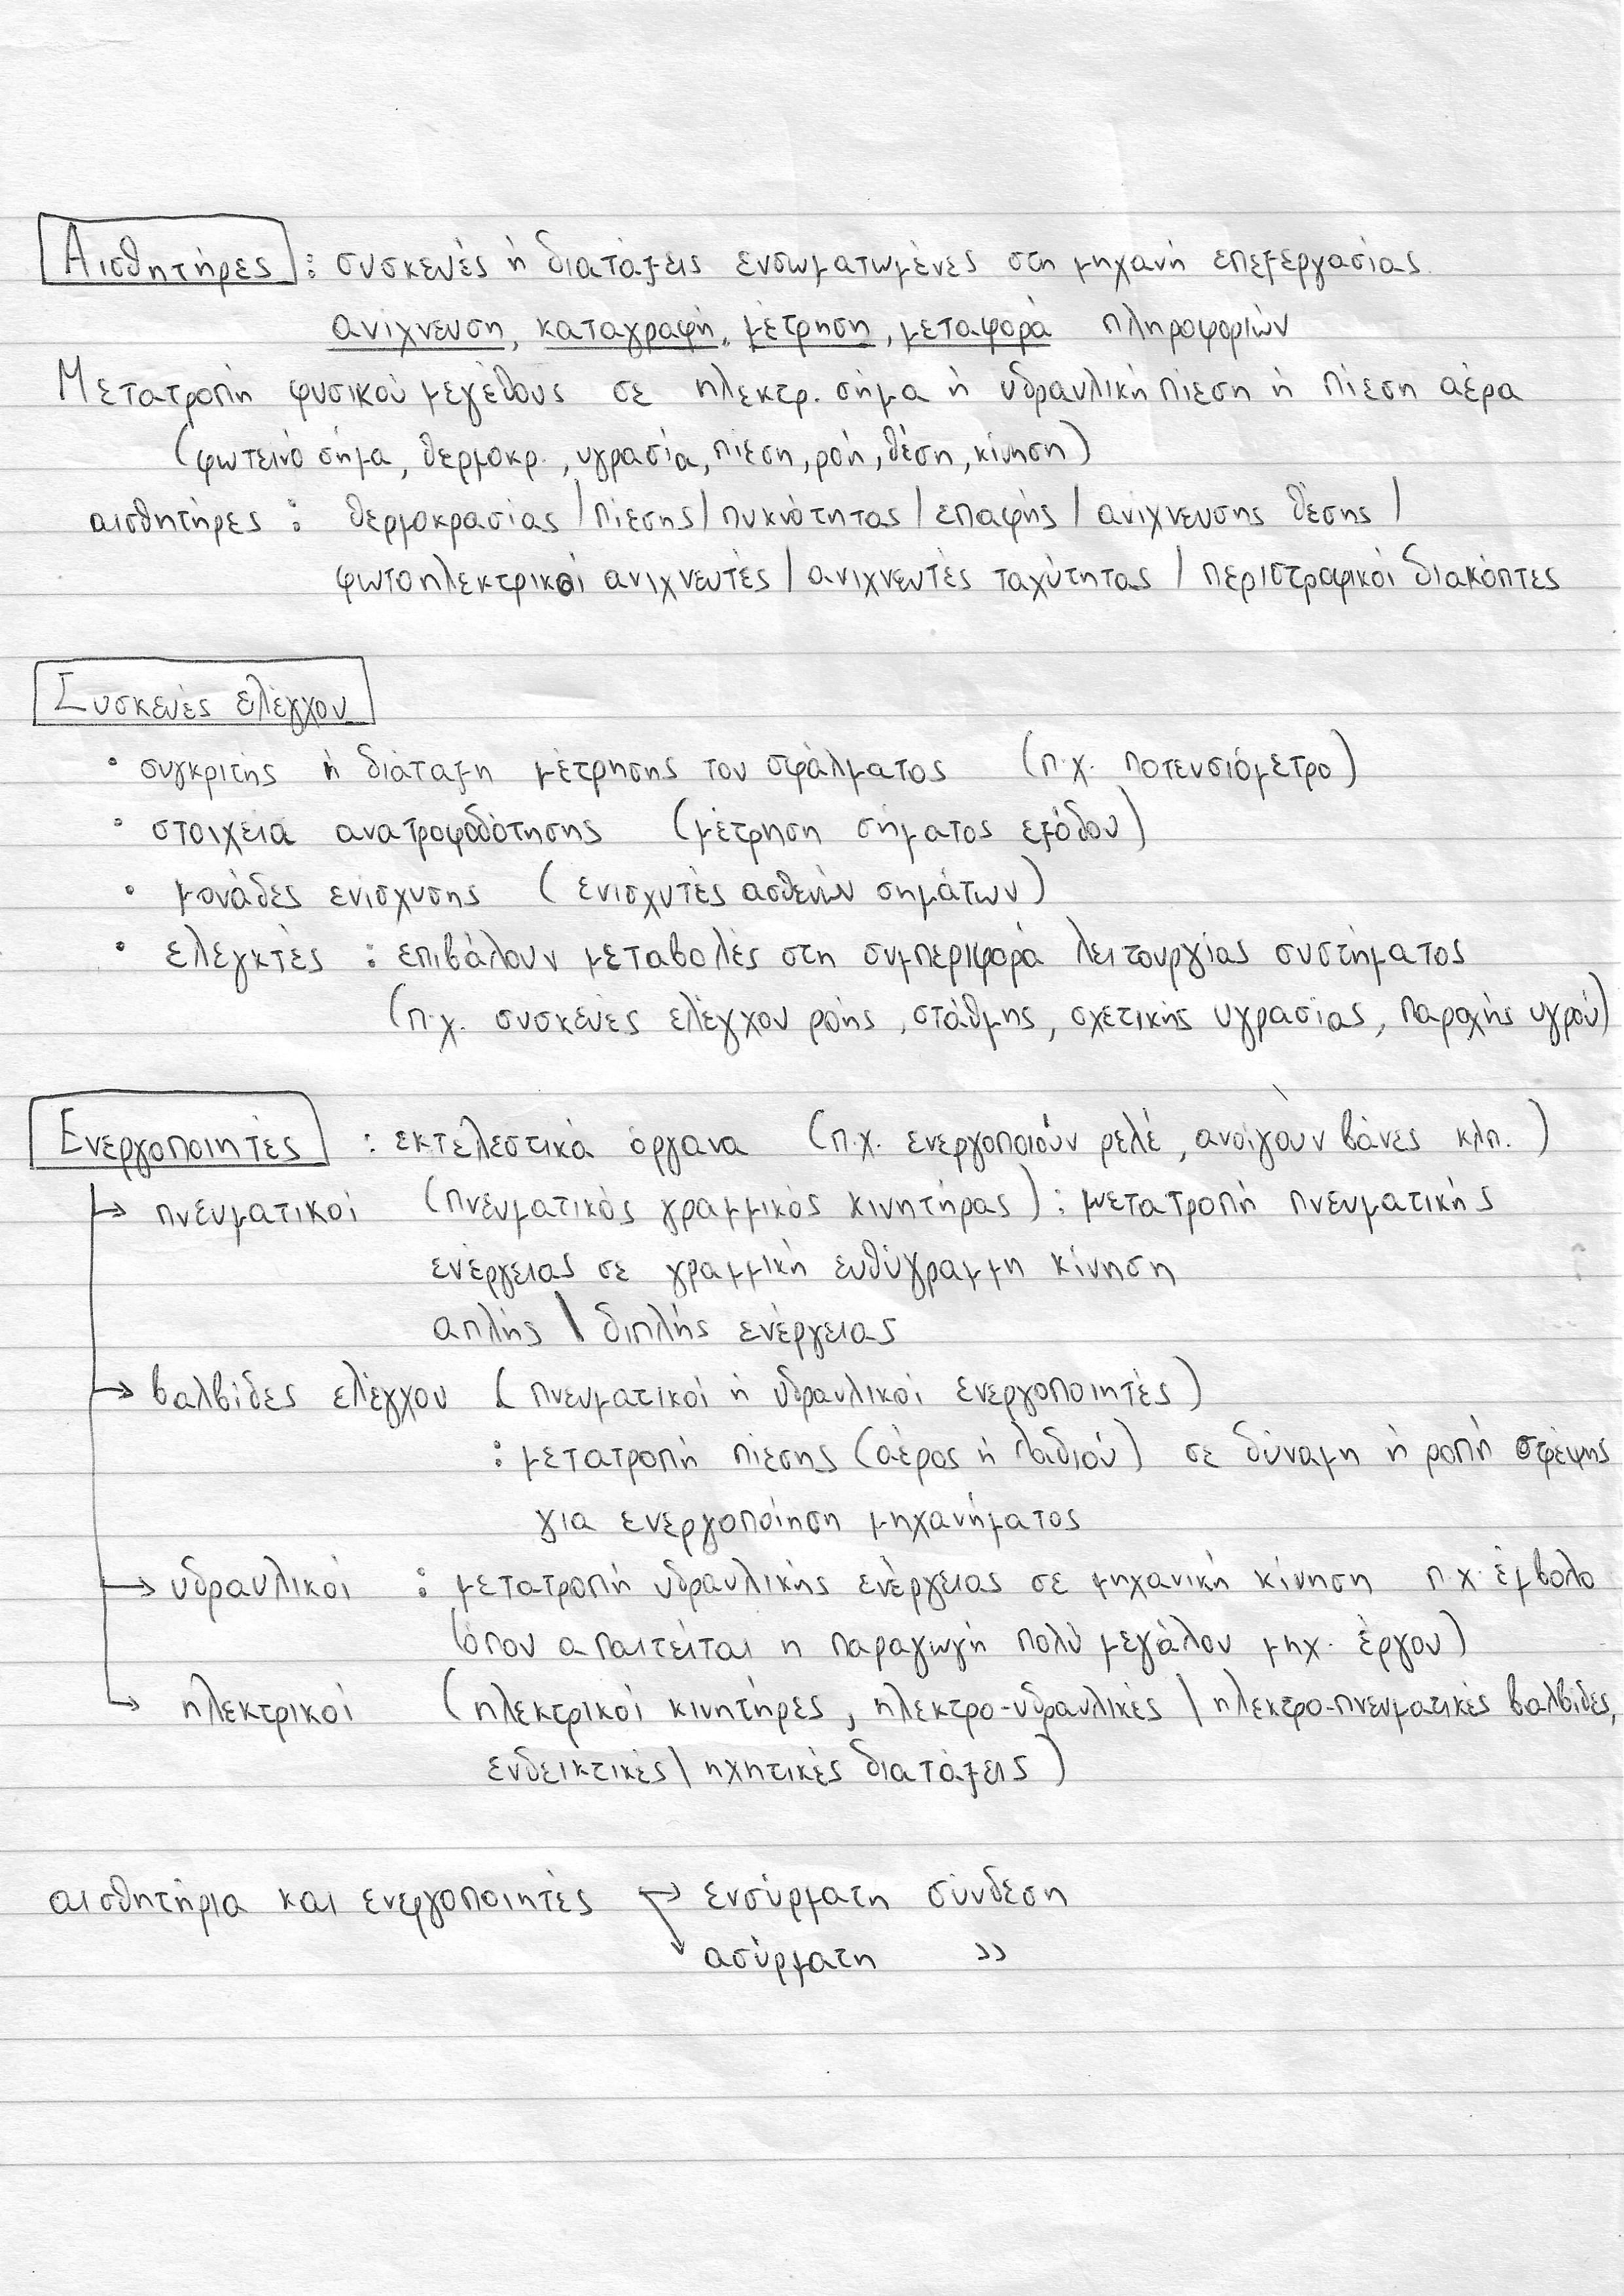 Αισθητήρες : συσκευές ή διατάξεις ενσωματωμένες στη μηχανή επεξεργασίας.
ανίχνευση, καταγραφή, μέτρηση, μεταφορά πληροφοριών
Μετατροπή φυσικού μεγέθους σε ηλεκτρ. σήμα ή υδραυλική πίεση ή πίεση αέρα
(φωτεινό σήμα, θερμοκρ., υγρασία, πίεση, ροή, θέση, κίνηση)
αισθητήρες : θερμοκρασίας / πίεσης / πυκνότητας / επαφής / ανίχνευσης θέσης /
φωτοηλεκτρικοί ανιχνευτές / ανιχνευτές ταχύτητας / περιστροφικοί διακόπτες
Συσκευές ελέγχου
• συγκριτής ή διάταξη μέτρησης του σφάλματος (π.χ. ποτενσιόμετρο)
• στοιχεία ανατροφοδότησης (μέτρηση σήματος εξόδου)
• μονάδες ενίσχυσης (ενισχυτές ασθενών σημάτων)
• ελεγκτές : επιβάλουν μεταβολές στη συμπεριφορά λειτουργίας συστήματος
(π.χ. συσκευές ελέγχου ροής, στάθμης, σχετικής υγρασίας, παροχής υγρού)
Ενεργοποιητές : εκτελεστικά όργανα (π.χ. ενεργοποιούν ρελέ, ανοίγουν βάνες κλπ.)
→ πνευματικοί (πνευματικός γραμμικός κινητήρας) : μετατροπή πνευματικής
ενέργειας σε γραμμική ευθύγραμμη κίνηση
απλής \ διπλής ενέργειας
→ βαλβίδες ελέγχου (πνευματικοί ή υδραυλικοί ενεργοποιητές)
: μετατροπή πίεσης (αέρος ή λαδιού) σε δύναμη ή ροπή στρέψης
για ενεργοποίηση μηχανήματος
→ υδραυλικοί : μετατροπή υδραυλικής ενέργειας σε μηχανική κίνηση π.χ. έμβολο
(όπου απαιτείται η παραγωγή πολύ μεγάλου μηχ. έργου)
→ ηλεκτρικοί (ηλεκτρικοί κινητήρες, ηλεκτρο-υδραυλικές \ ηλεκτρο-πνευματικές βαλβίδες,
ενδεικτικές \ ηχητικές διατάξεις)
αισθητήρια και ενεργοποιητές → ενσύρματη σύνδεση
→ ασύρματη »